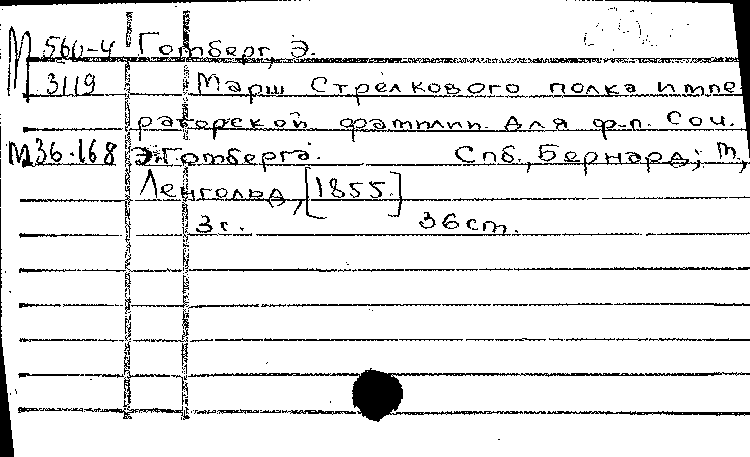 М 560-4 Готберг, Э.
3119 Марш Стрелкового полка импе
раторской фамилии. Для ф-п. Соч.
М 36-168 Э. Готберга. Спб., Бернард; М,
Ленгольд, [1855.]
3 с. 36 см.